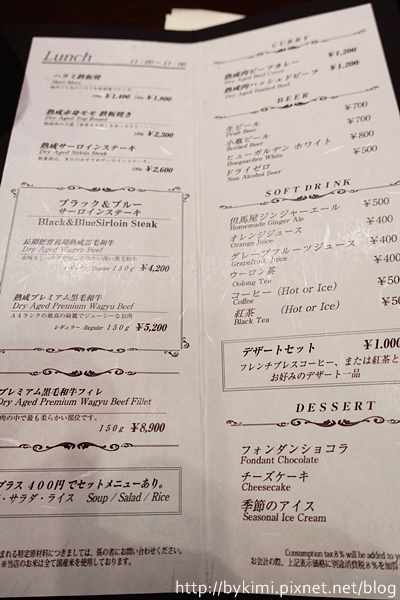 Lunch 11:00~17:00
ハラミ鉄板焼
Skirt Meat
¥1,400 ¥1,800
熟成赤身モモ 鉄板焼き
Dry Aged Top Round
¥2,300
熟成サーロインステーキ
Dry Aged Sirloin Steak
¥2,600
ブラック&ブルー
サーロインステーキ
Black&BlueSirloin Steak
長期肥育長期熟成黒毛和牛
Dry Aged Wagyu Beef
Regular 150g ¥4,200
熟成プレミアム黒毛和牛
Dry Aged Premium Wagyu Beef
A4ランクの最高の綺麗でジューシーなお肉
レギュラー・Regular 150g ¥5,200
プレミアム黒毛和牛フィレ
Dry Aged Premium Wagyu Beef Fillet
肉の中で最も柔らかい部位です。
150g ¥8,900
プラス400円でセットメニューあり。
・サラダ・ライス Soup / Salad / Rice
まれる特定原材料につきましては、係の者にお問い合わせください。
※当店のお米は全て国産米を使用しております。
CURRY
熟成肉ビーフカレー ¥1,200
Dry Aged Beef Curry
熟成肉ハッシュドビーフ ¥1,200
Dry Aged Hashed Beef
BEER
生ビール ¥700
Draft Beer
小瓶ビール ¥700
Bottled Beer
ヒューガルデン ホワイト ¥800
Hoegaarden White
ドライゼロ ¥500
Non Alcohol Beer
SOFT DRINK
但馬屋ジンジャーエール ¥500
Homemade Ginger Ale
オレンジジュース ¥400
Orange Juice
グレープフルーツジュース ¥400
Grapefruit Juice
ウーロン茶
Oolong Tea
コーヒー (Hot or Ice)
Coffee
紅茶 (Hot or Ice)
Black Tea
デザートセット ¥1,000
フレンチプレスコーヒー、または紅茶と
お好みのデザート一品
DESSERT
フォンダンショコラ
Fondant Chocolate
チーズケーキ
Cheesecake
季節のアイス
Seasonal Ice Cream
Consumption tax 8% will be added to
お会計の際、上記表示価格に別途消費税8%を加算
http://bykimi.pixnet.net/blog